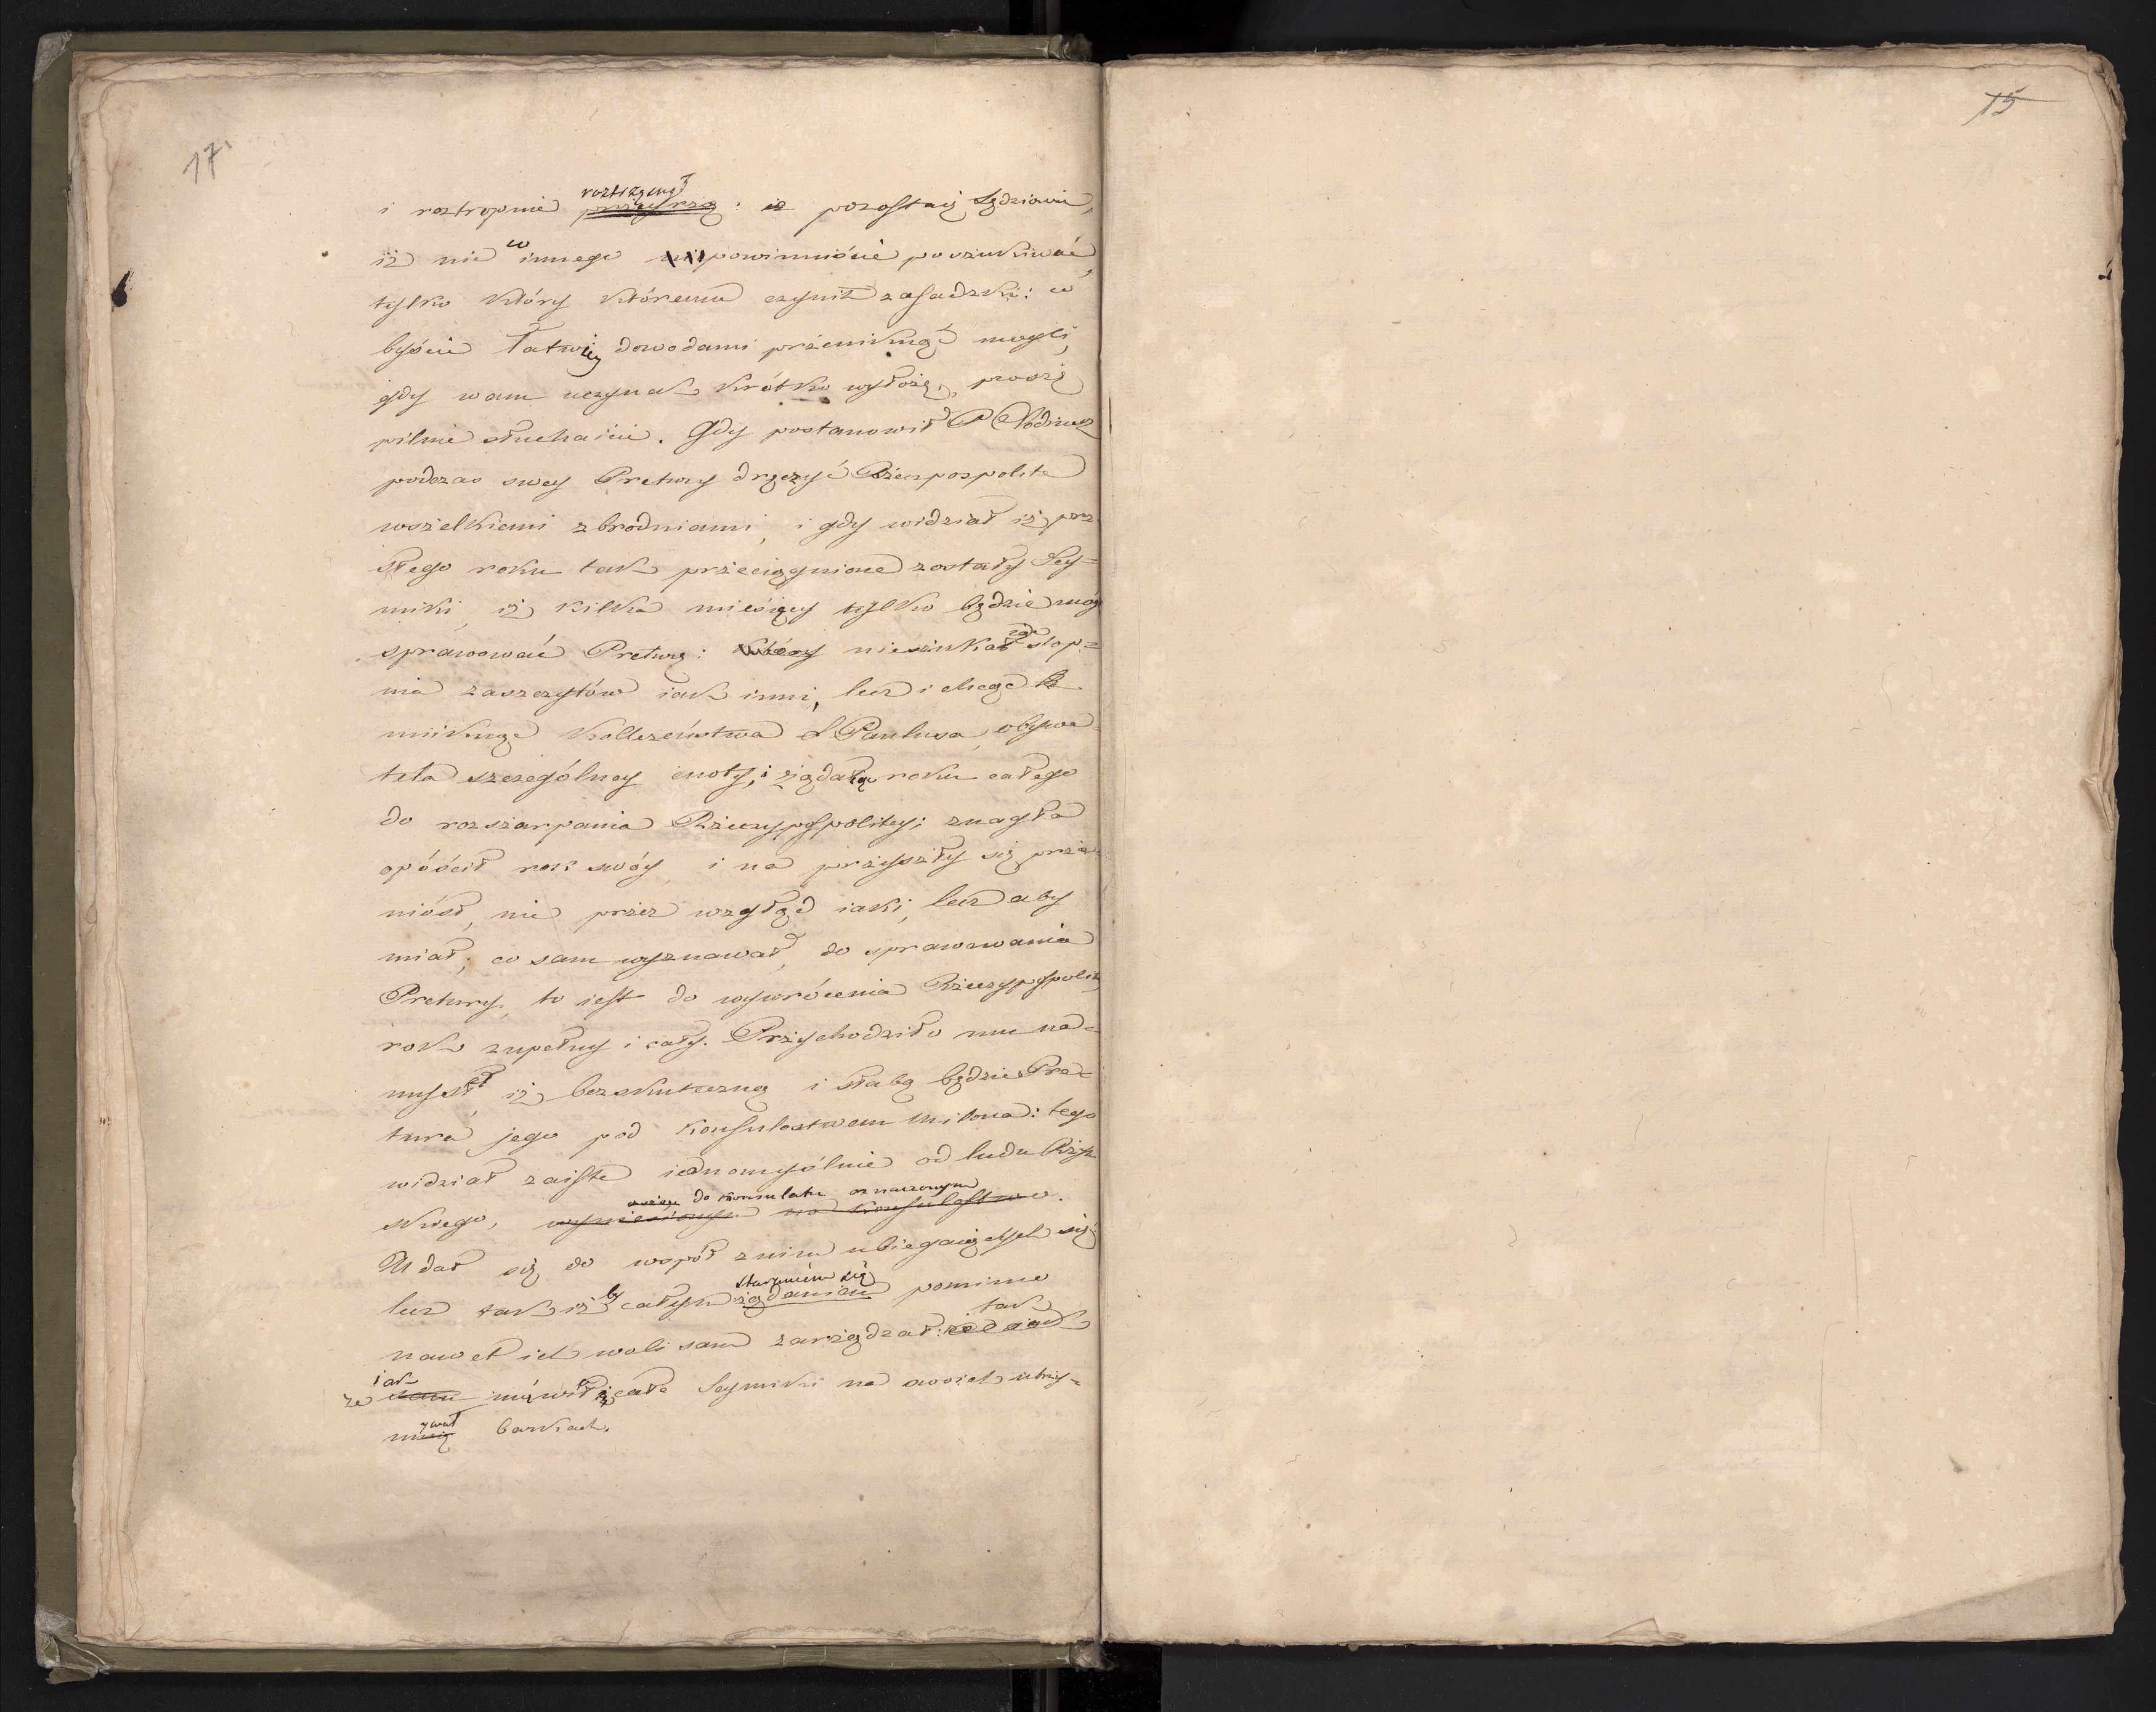 17.
15
roztrząsnął
i roztropnie przeyrzą: iż pozostaię Sędziowie,
iż nie w innego powinniście poszukiwać,
tylko który któremu czynił zasadzki: co
byście łatwiey dowodami przeniknąć mogli,
gdy wam uczynek krótko wyłożę, proszę
pilnie słuchaicie. Gdy postanowił P Klodiusz
podczas swey Pretury dręczyć Rzeczpospolitę
wszelkiemi zbrodniami, i gdy widział iż prze
słego roku tak przeciągnione zostały Sey=
miki, iż kilka miesięcy tylko będzie mógł
sprawować Preturę: który nieszukał stop=
nia zaszczytów iak inni, lecz i chcąc
uniknąć kollezeństwa L Paulusa, obywa=
tela szczególney cnoty, i żądał roku całego
do rozszarpania Rzeczypospolitey; znagła
opóścił rok swóy, i na przyszły się prze=
niósł, nie przez wzgląd iaki, lecz aby
miał, co sam wyznawał, do sprawowania
Pretury, to iest do wywrócenia Rzeczypospolitey
rok zupełny i cały. Przychodziło mu na=
mysł, iż bezskuteczną i słabą będzie Pre=
tura jego pod Konsulostwem Milona: tego
widział zaiste iednomyślnie od ludu Rzym
do konsulatu oznaczonym
skiego, wyniesionym na Konsulostwo.
Udał się do wspól znim ubiegaiących się;
staraniem się
lecz tak iż by całym żądaniem pomimo
tak
nawet ich woli sam zarządzał:
iak
że mówił całe Seymiki na swoich utrzy=
ywał
mią barkach.